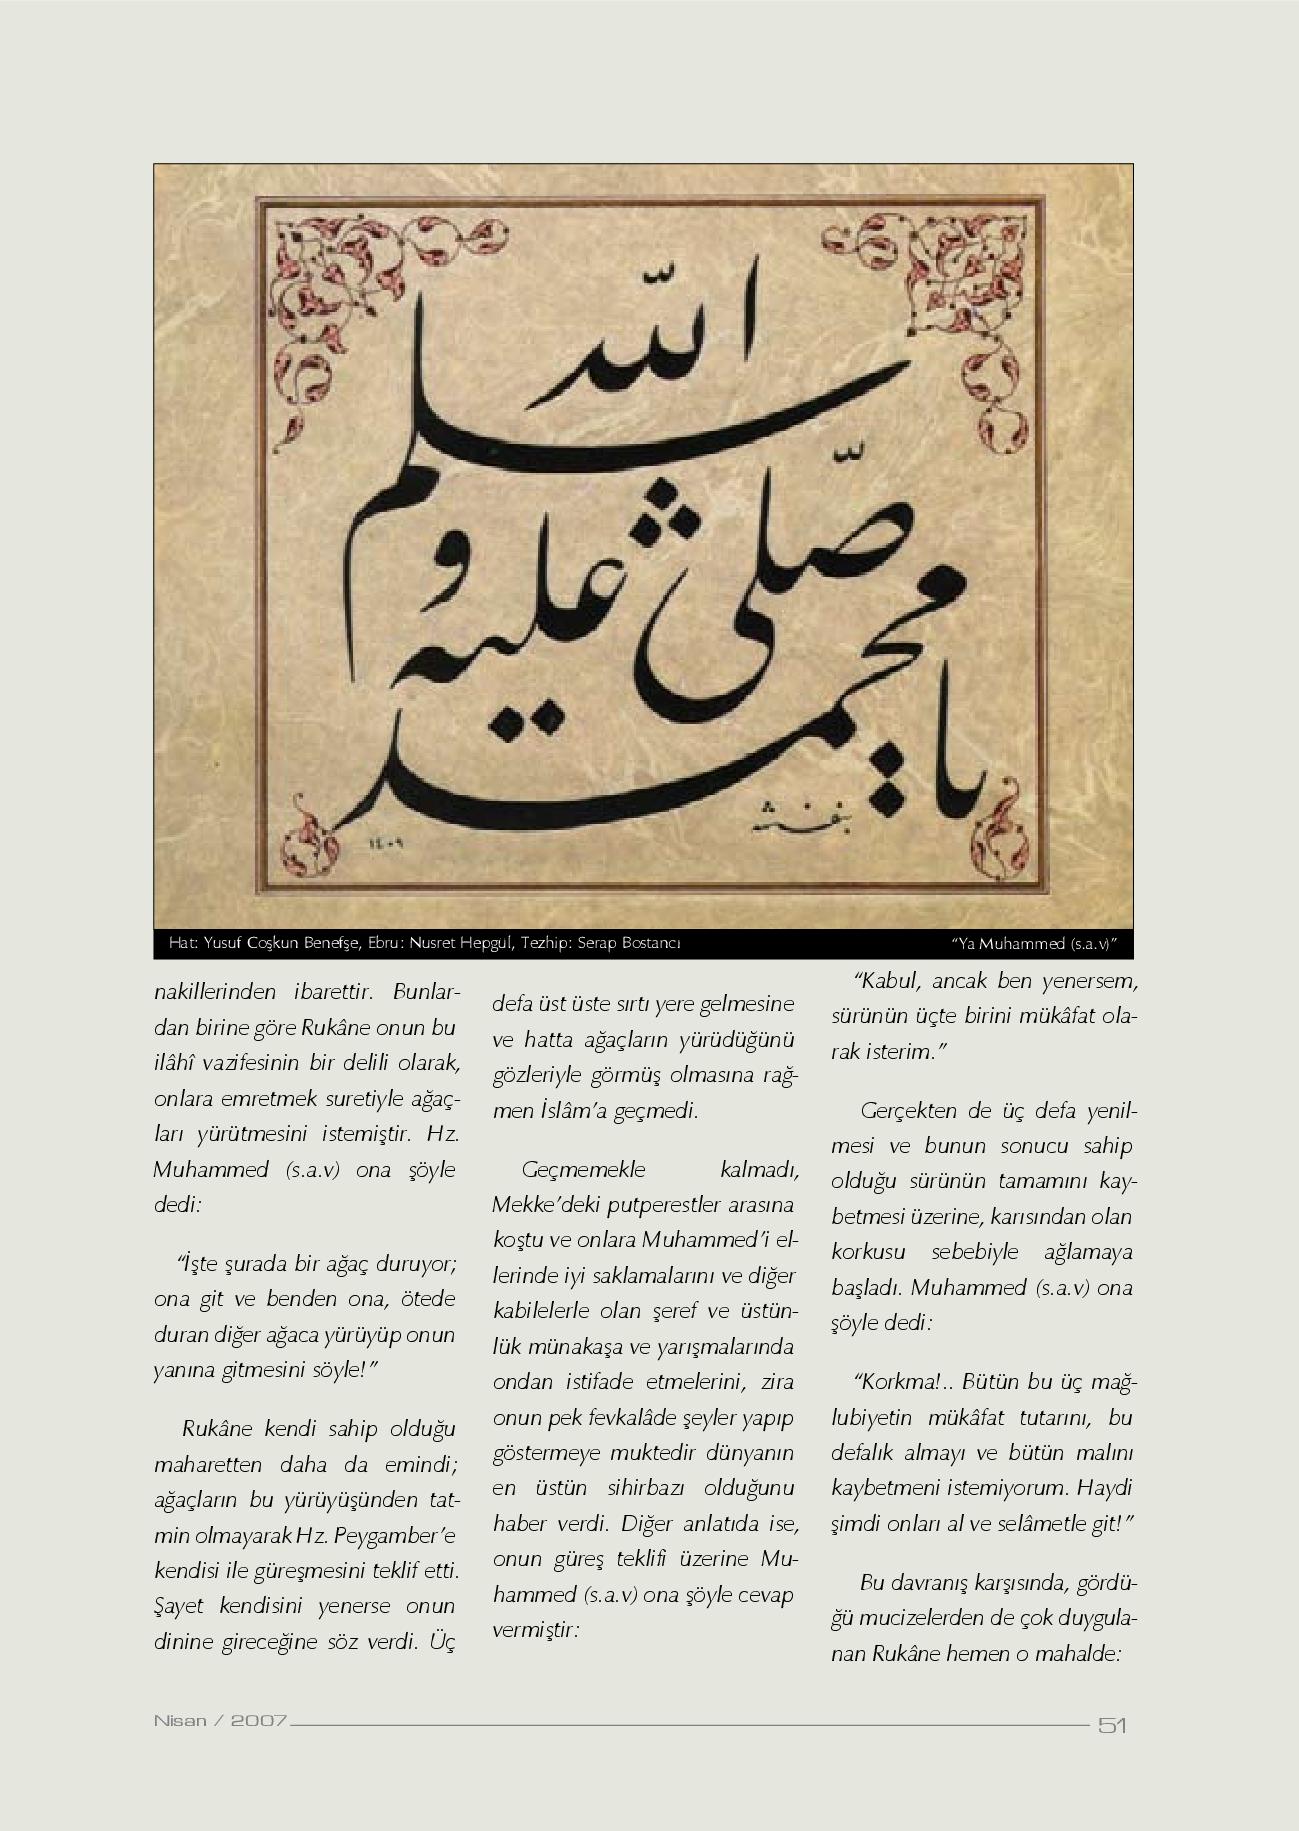 يا محمد
صلّى اللّه
عليه وسلم
بنفشه
١٤٠٩
Hat: Yusuf Coşkun Benefşe, Ebru: Nusret Hepgül, Tezhip: Serap Bostancı
“Ya Muhammed (s.a.v)”
nakillerinden ibarettir. Bunlar-
dan birine göre Rukâne onun bu
ilâhî vazifesinin bir delili olarak,
onlara emretmek suretiyle ağaç-
ları yürütmesini istemiştir. Hz.
Muhammed (s.a.v) ona şöyle
dedi:
“İşte şurada bir ağaç duruyor;
ona git ve benden ona, ötede
duran diğer ağaca yürüyüp onun
yanına gitmesini söyle!”
Rukâne kendi sahip olduğu
maharetten daha da emindi;
ağaçların bu yürüyüşünden tat-
min olmayarak Hz. Peygamber’e
kendisi ile güreşmesini teklif etti.
Şayet kendisini yenerse onun
dinine gireceğine söz verdi. Üç
defa üst üste sırtı yere gelmesine
ve hatta ağaçların yürüdüğünü
gözleriyle görmüş olmasına rağ-
men İslâm’a geçmedi.
Geçmemekle kalmadı,
Mekke’deki putperestler arasına
koştu ve onlara Muhammed’i el-
lerinde iyi saklamalarını ve diğer
kabilelerle olan şeref ve üstün-
lük münakaşa ve yarışmalarında
ondan istifade etmelerini, zira
onun pek fevkalâde şeyler yapıp
göstermeye muktedir dünyanın
en üstün sihirbazı olduğunu
haber verdi. Diğer anlatıda ise,
onun güreş teklifi üzerine Mu-
hammed (s.a.v) ona şöyle cevap
vermiştir:
“Kabul, ancak ben yenersem,
sürünün üçte birini mükâfat ola-
rak isterim.”
Gerçekten de üç defa yenil-
mesi ve bunun sonucu sahip
olduğu sürünün tamamını kay-
betmesi üzerine, karısından olan
korkusu sebebiyle ağlamaya
başladı. Muhammed (s.a.v) ona
şöyle dedi:
“Korkma!.. Bütün bu üç mağ-
lubiyetin mükâfat tutarını, bu
defalık almayı ve bütün malını
kaybetmeni istemiyorum. Haydi
şimdi onları al ve selâmetle git!”
Bu davranış karşısında, gördü-
ğü mucizelerden de çok duygula-
nan Rukâne hemen o mahalde:
Nisan / 2007
51